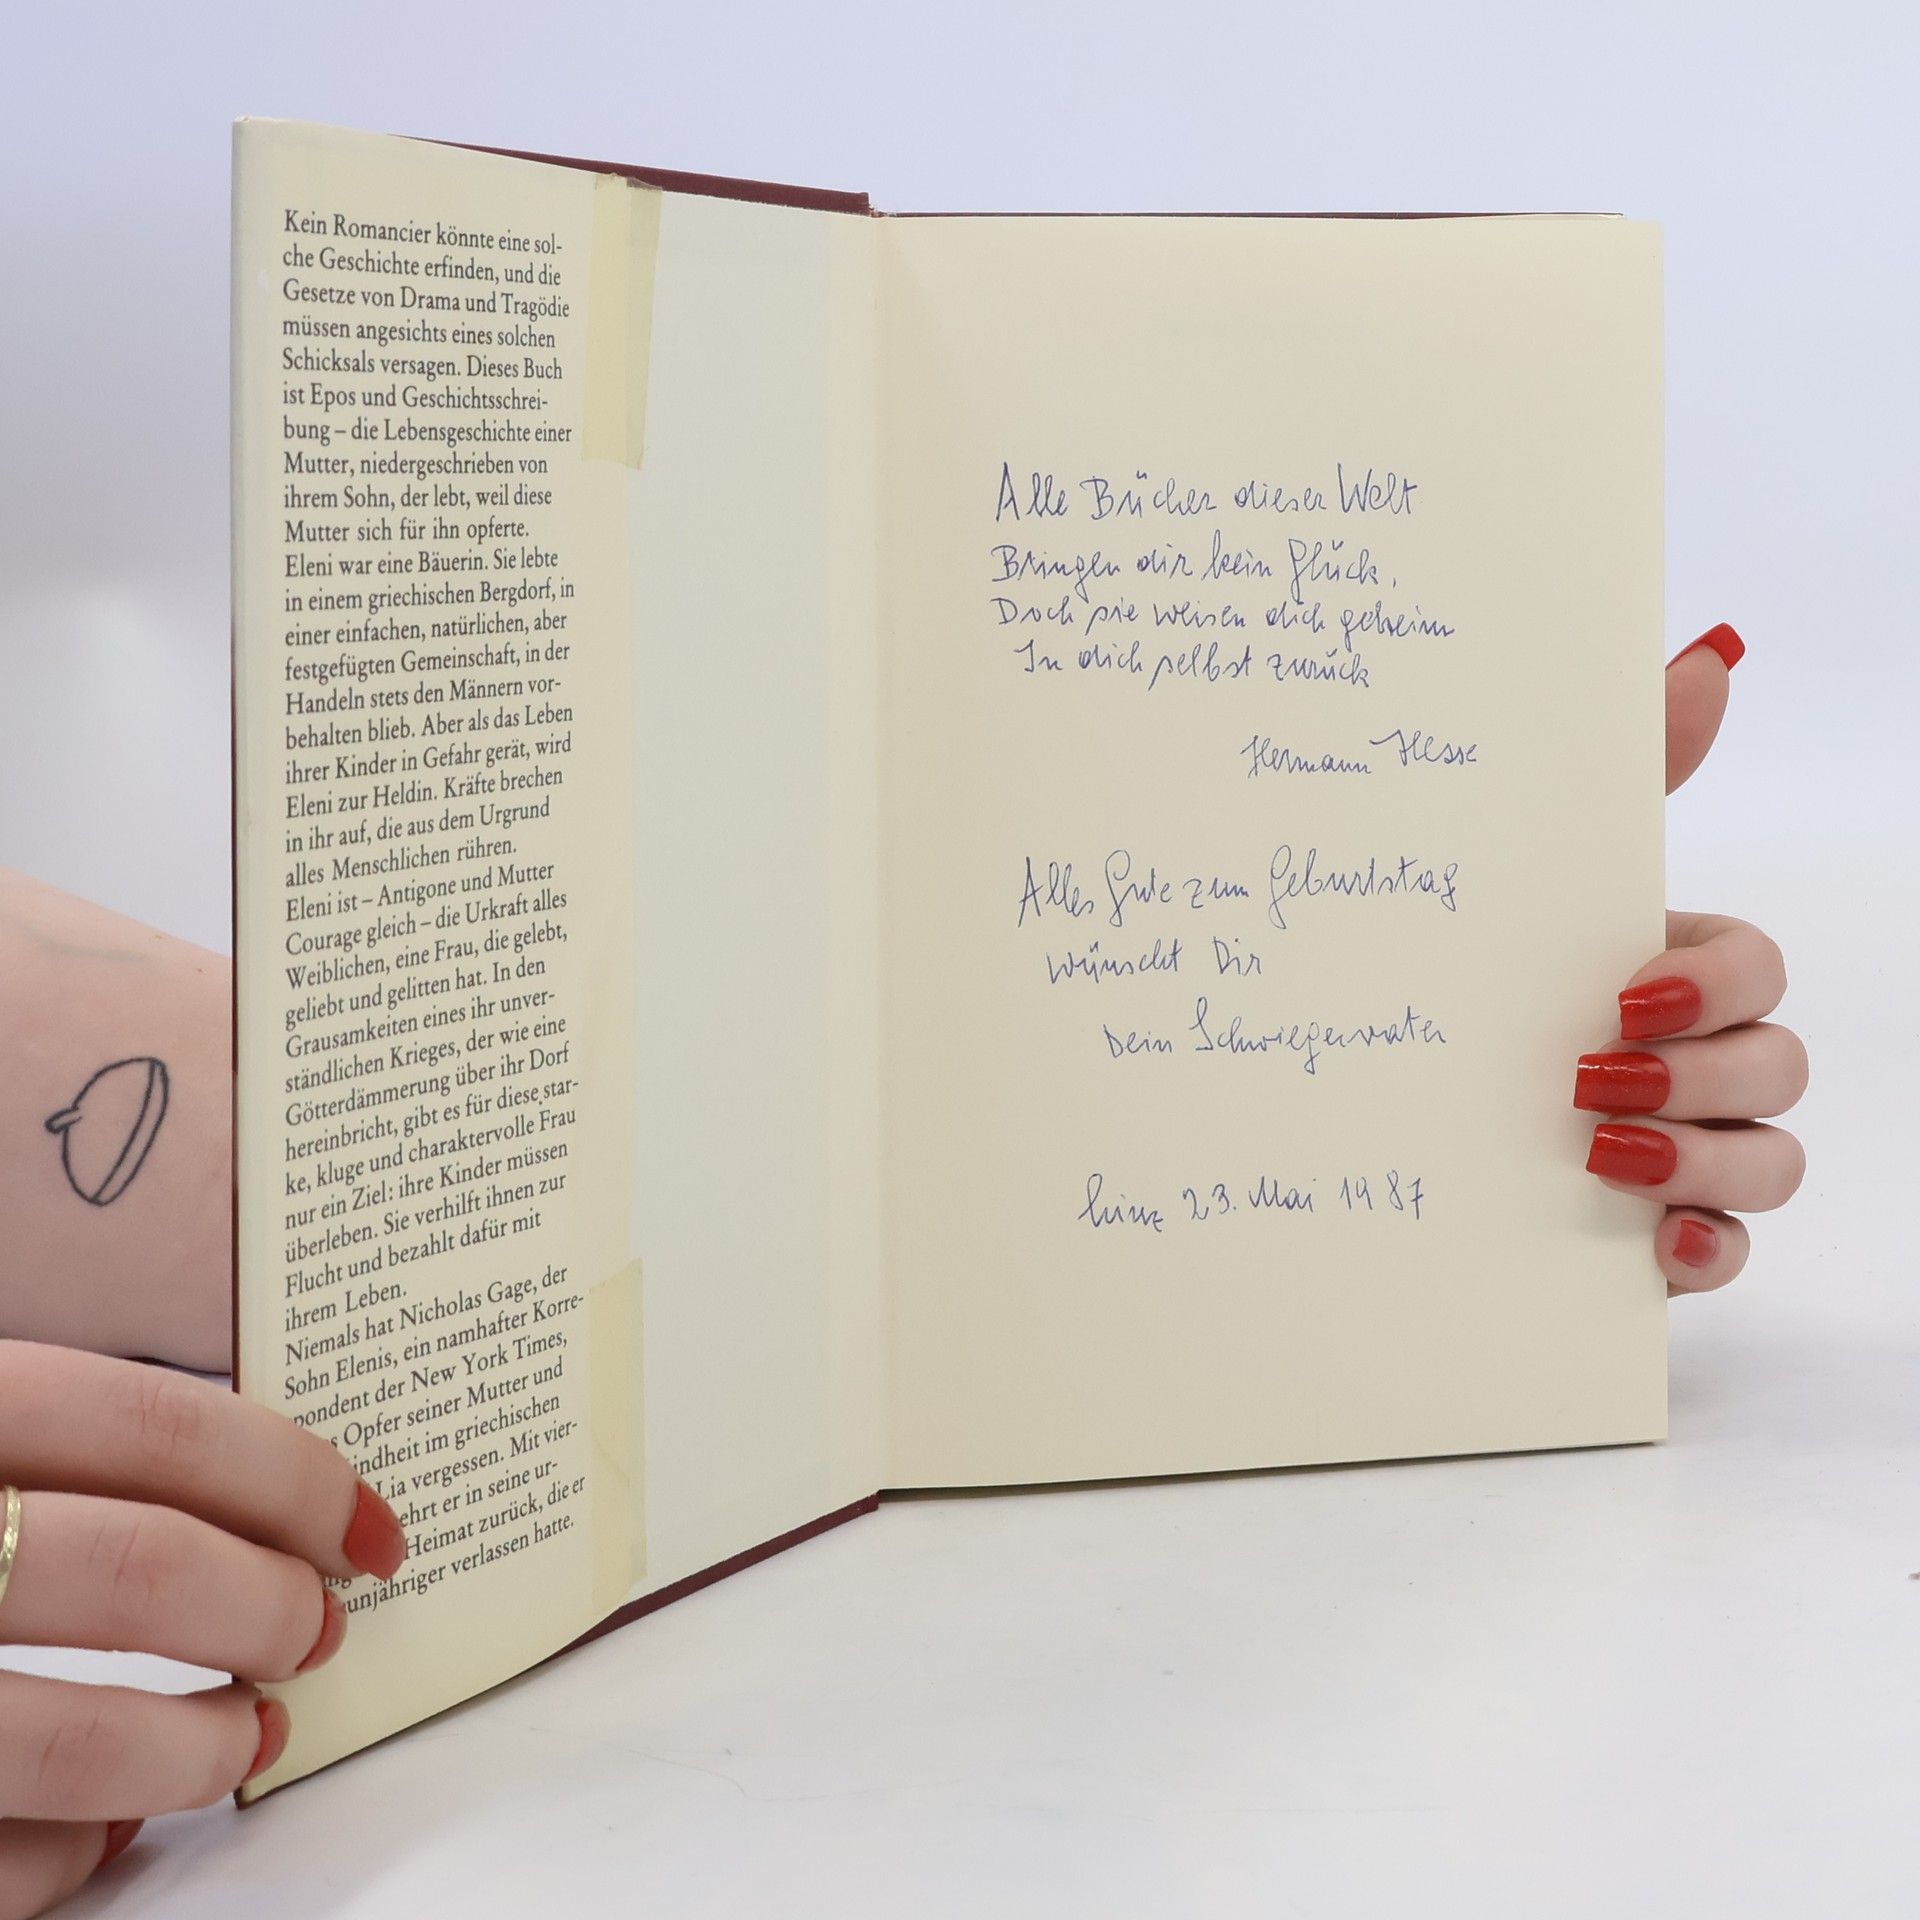 Kein Romancier könnte eine sol-
che Geschichte erfinden, und die
Gesetze von Drama und Tragödie
müssen angesichts eines solchen
Schicksals versagen. Dieses Buch
ist Epos und Geschichtsschrei-
bung – die Lebensgeschichte einer
Mutter, niedergeschrieben von
ihrem Sohn, der lebt, weil diese
Mutter sich für ihn opferte.
Eleni war eine Bäuerin. Sie lebte
in einem griechischen Bergdorf, in
einer einfachen, natürlichen, aber
festgefügten Gemeinschaft, in der
Handeln stets den Männern vor-
behalten blieb. Aber als das Leben
ihrer Kinder in Gefahr gerät, wird
Eleni zur Heldin. Kräfte brechen
in ihr auf, die aus dem Urgrund
alles Menschlichen rühren.
Eleni ist – Antigone und Mutter
Courage gleich – die Urkraft alles
Weiblichen, eine Frau, die gelebt,
geliebt und gelitten hat. In den
Grausamkeiten eines ihr unver-
ständlichen Krieges, der wie eine
Götterdämmerung über ihr Dorf
hereinbricht, gibt es für diese star-
ke, kluge und charaktervolle Frau
nur ein Ziel: ihre Kinder müssen
überleben. Sie verhilft ihnen zur
Flucht und bezahlt dafür mit
ihrem Leben.
Niemals hat Nicholas Gage, der
Sohn Elenis, ein namhafter Korre-
pondent der New York Times,
s Opfer seiner Mutter und
indheit im griechischen
Lia vergessen. Mit vier-
ehrt er in seine ur-
Heimat zurück, die er
unjähriger verlassen hatte.
Alle Bücher dieser Welt
Bringen dir kein Glück,
Doch sie weisen dich geheim
In dich selbst zurück
Hermann Hesse
Alles Gute zum Geburtstag
wünscht Dir
Dein Schwiegervater
Linz 23. Mai 1987